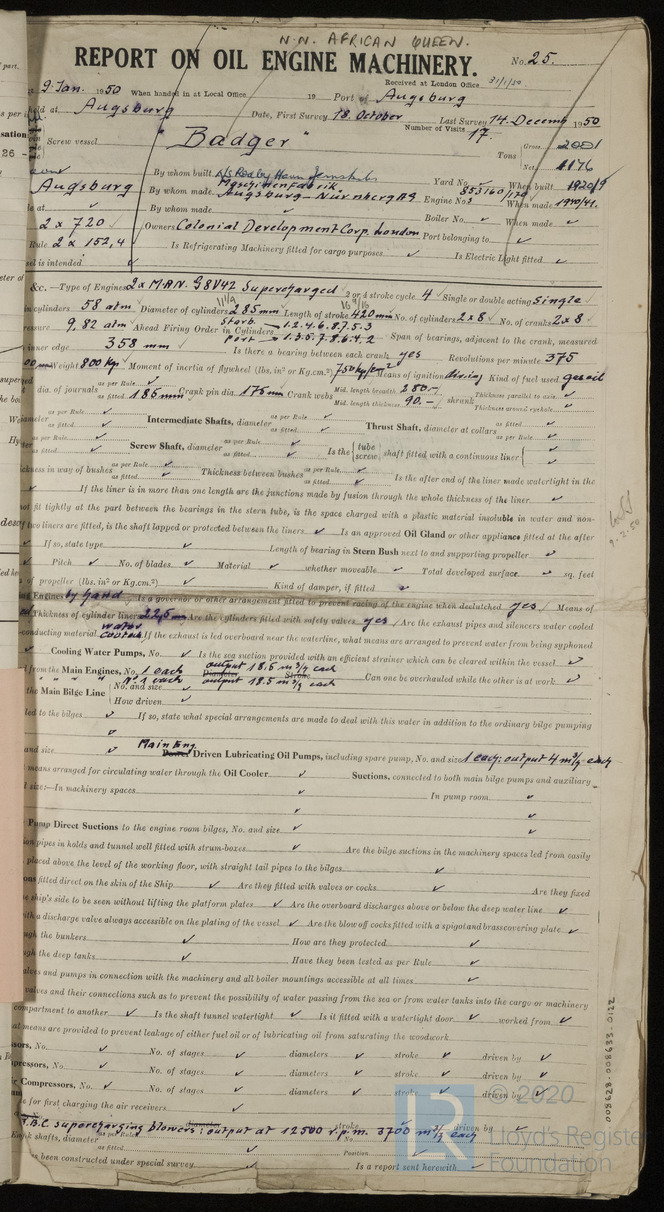 N.N. AFRICAN QUEEN.
REPORT ON OIL ENGINE MACHINERY. No. 25.
Received at London Office 31/1/50
9 Jan. 1950 When handed in at Local Office 19 Port of Augsburg
held at Augsburg Date, First Survey 18. October Last Survey 14. Decemb 1950
Number of Visits 17.
Screw vessel "Badger" Tons Gross 2001
Net 1176
By whom built Yard No. When built
Augsburg By whom made Maschinenfabrik Augsburg-Nürnberg AG Engine Nos 853160/170 When made 1940/41.
By whom made Boiler No. When made
2 x 720 Owners Colonial Development Corp. London Port belonging to
Rule 2 x 152,4 Is Refrigerating Machinery fitted for cargo purposes Is Electric Light fitted
sel is intended
&c.—Type of Engines 2 x M.A.N. G8V42 Supercharged 2 or 4 stroke cycle 4 Single or double acting Single
in cylinders 58 atm Diameter of cylinders 285 mm Length of stroke 420 mm No. of cylinders 2x8 No. of cranks 2x8
ressure 9,82 atm Ahead Firing Order in Cylinders Starb. 1.2.4.6.8.7.5.3 Port 1.3.5.7.8.6.4.2 Span of bearings, adjacent to the crank, measured
inner edge 358 mm Is there a bearing between each crank yes Revolutions per minute 375
Weight 800 Kg. Moment of inertia of flywheel (lbs. in² or Kg.cm.²) 750 kg/cm² Means of ignition Kind of fuel used gasoil
dia. of journals as per Rule as fitted 185 mm Crank pin dia. 175 mm Crank webs Mid. length breadth 280.- Mid. length thickness 90.- shrunk Thickness parallel to axis Thickness around eyehole
as per Rule as fitted Intermediate Shafts, diameter as per Rule as fitted Thrust Shaft, diameter at collars as per Rule as fitted
as per Rule as fitted Screw Shaft, diameter as per Rule as fitted Is the {tube screw} shaft fitted with a continuous liner
ickness in way of bushes as per Rule as fitted Thickness between bushes as per Rule as fitted Is the after end of the liner made watertight in the
If the liner is in more than one length are the junctions made by fusion through the whole thickness of the liner
not fit tightly at the part between the bearings in the stern tube, is the space charged with a plastic material insoluble in water and non-
two liners are fitted, is the shaft lapped or protected between the liners Is an approved Oil Gland or other appliance fitted at the after
If so, state type Length of bearing in Stern Bush next to and supporting propeller
Pitch No. of blades Material whether moveable Total developed surface sq. feet
of propeller (lbs. in² or Kg.cm.²) Kind of damper, if fitted
ng Engines by hand Is a governor or other arrangement fitted to prevent racing of the engine when declutched yes Means of
Thickness of cylinder liners 22,5 mm Are the cylinders fitted with safety valves yes Are the exhaust pipes and silencers water cooled
conducting material water cooled If the exhaust is led overboard near the waterline, what means are arranged to prevent water from being syphoned
Cooling Water Pumps, No. Is the sea suction provided with an efficient strainer which can be cleared within the vessel
from the Main Engines, No. 1 each output 18.5 m³/h each
No. 1 each Diameter output 18.5 m³/h each Stroke Can one be overhauled while the other is at work
the Main Bilge Line No. and size
How driven
led to the bilges If so, state what special arrangements are made to deal with this water in addition to the ordinary bilge pumping
and size Main Eng. Driven Lubricating Oil Pumps, including spare pump, No. and size 1 each; output 4 m³/h each
means arranged for circulating water through the Oil Cooler Suctions, connected to both main bilge pumps and auxiliary
size:—In machinery spaces In pump room
Pump Direct Suctions to the engine room bilges, No. and size
on pipes in holds and tunnel well fitted with strum-boxes Are the bilge suctions in the machinery spaces led from easily
placed above the level of the working floor, with straight tail pipes to the bilges
ons fitted direct on the skin of the Ship Are they fitted with valves or cocks Are they fixed
ship's side to be seen without lifting the platform plates Are the overboard discharges above or below the deep water line
ith a discharge valve always accessible on the plating of the vessel Are the blow off cocks fitted with a spigot and brass covering plate
ugh the bunkers How are they protected
ugh the deep tanks Have they been tested as per Rule
alves and pumps in connection with the machinery and all boiler mountings accessible at all times
valves and their connections such as to prevent the possibility of water passing from the sea or from water tanks into the cargo or machinery
compartment to another Is the shaft tunnel watertight Is it fitted with a watertight door worked from
at means are provided to prevent leakage of either fuel oil or of lubricating oil from saturating the woodwork
sors, No. No. of stages diameters stroke driven by
pressors, No. No. of stages diameters stroke driven by
Compressors, No. No. of stages diameters stroke driven by
e for first charging the air receivers
B.B.C. supercharging blowers; output at 12500 r.p.m. 3700 m³/h each
nk shafts, diameter as per Rule as fitted No. Position
been constructed under special survey Is a report sent herewith
008628-008633-0122
© 2020
Lloyd's Register
Foundation